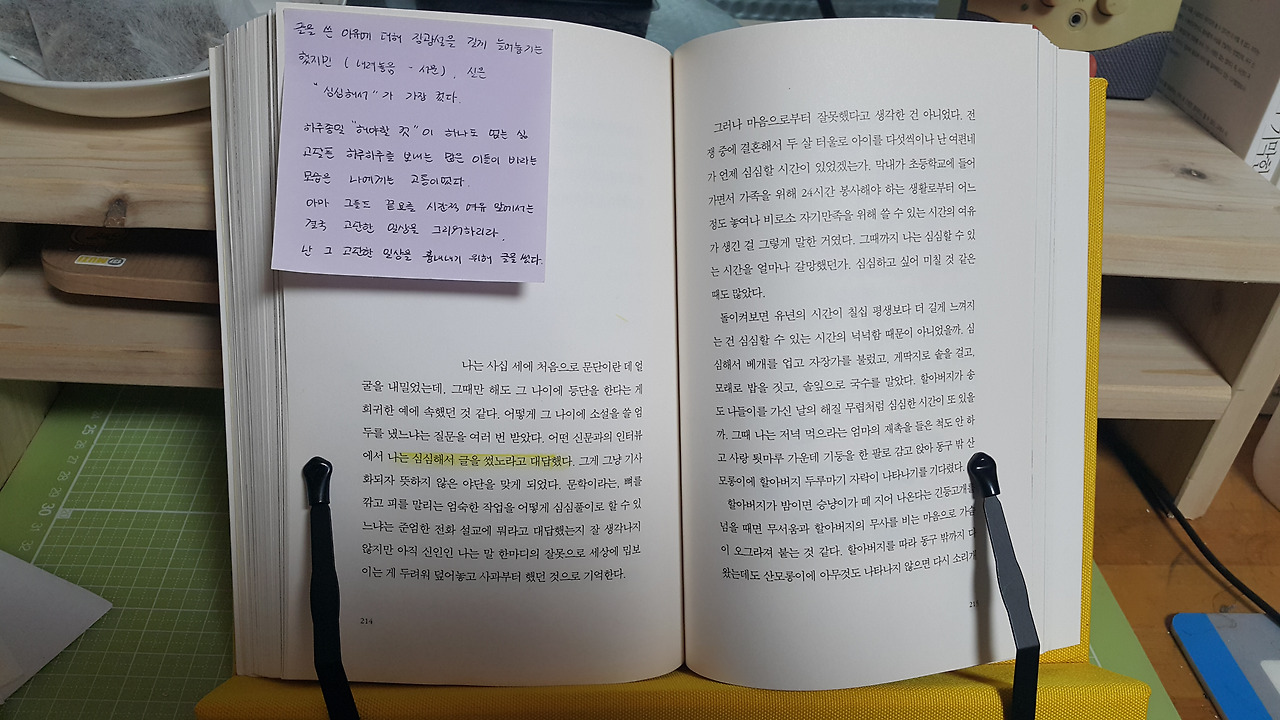 글을 쓴 이유에 대해 장광설을 길게 늘어놓기는
했지만 (내려놓음 - 서문), 실은
"심심해서"가 가장 컸다.
하루종일 "해야할 것"이 하나도 없는 삶
고달픈 하루하루를 보내는 많은 이들이 바라는
모습은 나에게는 고통이었다.
아마 그들도 끝모를 시간적 여유 앞에서는
결국 고단한 일상을 그리워하리라.
난 그 고단한 일상을 흉내내기 위해 글을 썼다.
나는 사십 세에 처음으로 문단이란 데 얼
굴을 내밀었는데, 그때만 해도 그 나이에 등단을 한다는 게
희귀한 예에 속했던 것 같다. 어떻게 그 나이에 소설을 쓸 엄
두를 냈느냐는 질문을 여러 번 받았다. 어떤 신문과의 인터뷰
에서 나는 심심해서 글을 썼노라고 대답했다. 그게 그냥 기사
화되자 뜻하지 않은 야단을 맞게 되었다. 문학이라는, 뼈를
깎고 피를 말리는 엄숙한 작업을 어떻게 심심풀이로 할 수 있
느냐는 준엄한 전화 설교에 뭐라고 대답했는지 잘 생각나지
않지만 아직 신인인 나는 말 한마디의 잘못으로 세상에 밉보
이는 게 두려워 덮어놓고 사과부터 했던 것으로 기억한다.
214
그러나 마음으로부터 잘못했다고 생각한 건 아니었다. 전
쟁 중에 결혼해서 두 살 터울로 아이를 다섯씩이나 난 여편네
가 언제 심심할 시간이 있었겠는가. 막내가 초등학교에 들어
가면서 가족을 위해 24시간 봉사해야 하는 생활로부터 어느
정도 놓여나 비로소 자기만족을 위해 쓸 수 있는 시간의 여유
가 생긴 걸 그렇게 말한 거였다. 그때까지 나는 심심할 수 있
는 시간을 얼마나 갈망했던가. 심심하고 싶어 미칠 것 같은
때도 많았다.
돌이켜보면 유년의 시간이 칠십 평생보다 더 길게 느껴지
는 건 심심할 수 있는 시간의 넉넉함 때문이 아니었을까. 심
심해서 베개를 업고 자장가를 불렀고, 게딱지로 솥을 걸고,
모래로 밥을 짓고, 솔잎으로 국수를 말았다. 할아버지가 송
도 나들이를 가신 날의 해질 무렵처럼 심심한 시간이 또 있을
까. 그때 나는 저녁 먹으라는 엄마의 재촉을 들은 척도 안 하
고 사랑 툇마루 가운데 기둥을 한 팔로 감고 앉아 동구 밖 산
모롱이에 할아버지 두루마기 자락이 나타나기를 기다렸다.
할아버지가 밤이면 승냥이가 떼 지어 나온다는 긴등고개를
넘을 때면 무서움과 할아버지의 무사를 비는 마음으로 가슴
이 오그라져 붙는 것 같다. 할아버지를 따라 동구 밖까지 다
왔는데도 산모롱이에 아무것도 나타나지 않으면 다시 소리개
215